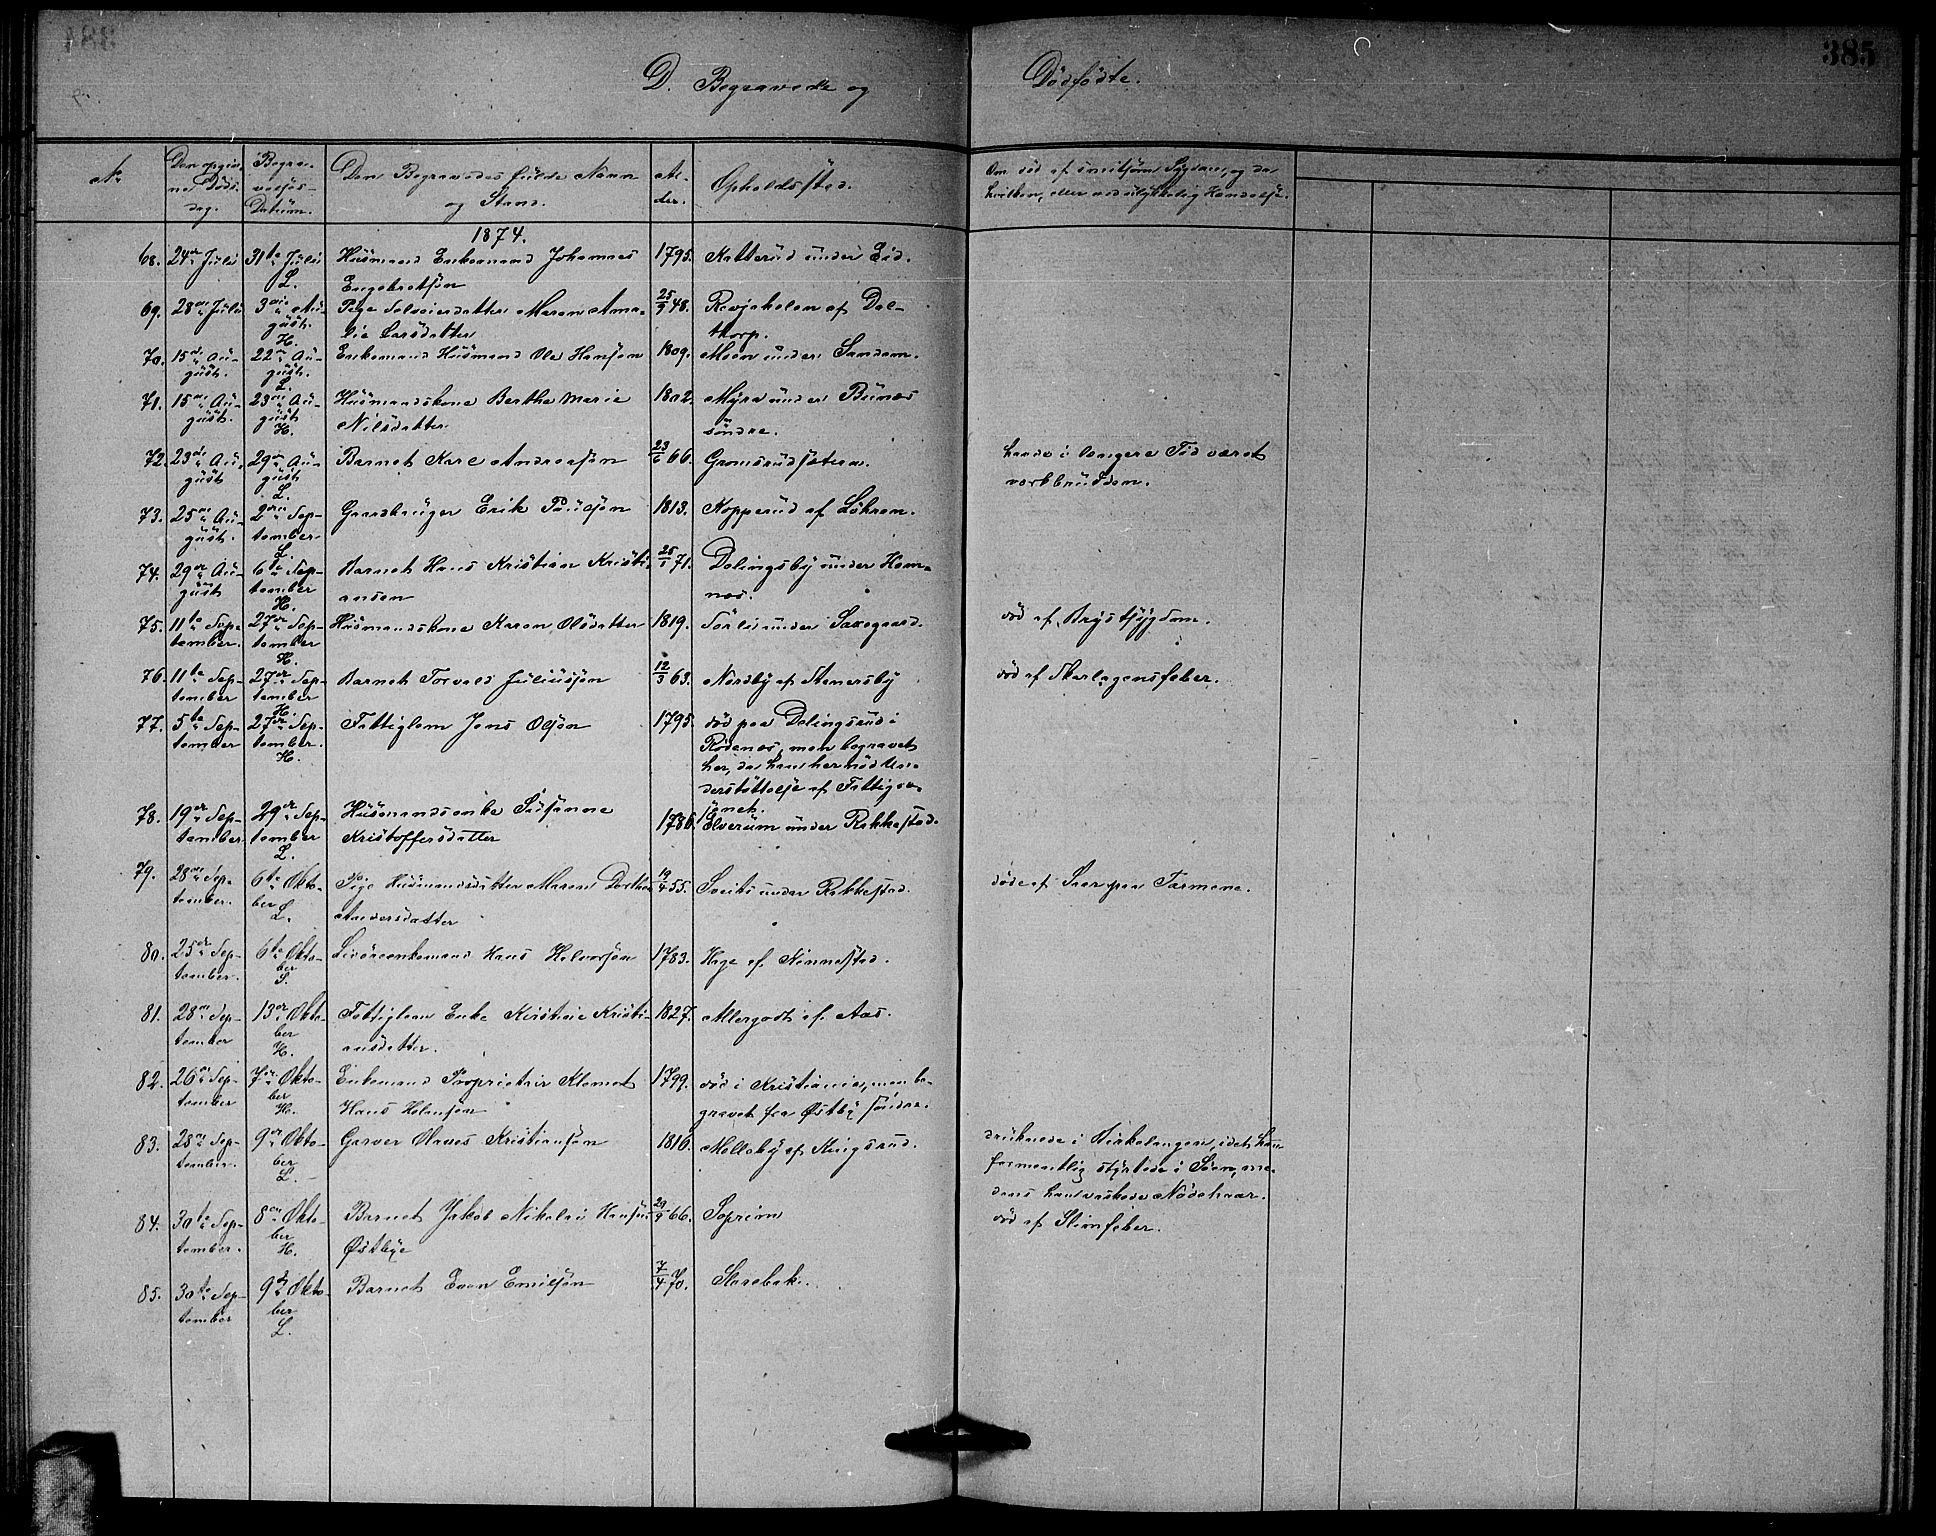 385
D. Begravede og Dødfødte.
No
Den opgivne Dødsdag.
Begravelses-Datum.
Den Begravedes fulde Navn og Stand.
Alder.
Opholdssted.
Om død af smitsom Sygdom, og da hvilken, eller ved ulykkelig Hændelse.
1874.
68. 24de Juli 31te Juli L. Husmand Enkemand Johannes Engebretsøn 1795. Katterud under Eid.
69. 28de Juli 3die August. H. Pige Maren Amalie Larsdatter 25/9 48. af Dalthorp.
70. 15de August. 22de August. L. Enkemand Husmand Ole Hansøn 1809. Moen under Sandem.
71. 15de August. 23de August H. Husmandskone Berthe Marie Nilsdatter. 1802. Myra under Bunes søndre.
72. 23de August 29de August L. Barnet Karl Andreasøn 23/6 66. Gromsrudsæteren. havde i længere Tid været værkbrudden.
73. 25de August. 2den September L. Gaardbruger Erik Poulsøn 1813. Kopperud af Løkren.
74. 29de August 6te September H. Barnet Hans Kristian Kristiansen 25/1 71. Dalingsby under Hemnes.
75. 11te September. 27de September H. Husmandskone Karen Olsdatter 1819. Sørli under Saxegaard. død af Brystsygdom.
76. 11te September 27de September H. Barnet Torvald Juliussøn 12/3 63. Nordby af Stenersby død af Skarlagensfeber.
77. 5te September 27de September. H. Fattiglem Jens Olsøn 1795. død paa Dalingsrud i Rødenes, men begravet her, da han her nød Understøttelse af Fattigvæsenet.
78. 19de September 29de September L. Husmandsenke Susanne Kristoffersdatter 1786. Elverum under Rakkestad.
79. 28de September. 6te Oktober L. Pige Husmandsdatter Maren Dorthea Andersdatter 19/4 55. Sveits under Rakkestad. døde af Saar paa Tarmene.
80. 25de September. 6te Oktober S. Livøreenkemand Hans Halvorsøn 1783. Hage af Nennestad.
81. 28de September 13de Oktober H. Fattiglem Enke Kristine Kristiansdatter. 1827. Allergodt af Aas.
82. 26de September 7de Oktober H. Enkemand Proprietær Klemet Hans Holmsøn 1799. død i Kristiania, men begravet fra Østby søndre.
83. 28de September. 9de Oktober L. Garver Olaves Kristiansøn 1816. Molleby af Kingsrud. druknede i Birkelangen, idet han formentlig styrtede i Søen, medens han vaskede Nødehaar.
84. 30te September. 8de Oktober H. Barnet Jakob Nikolai Hansøn Østbye 29/9 66. Soprim død af Slimfeber.
85. 30te September 9de Oktober L. Barnet Even Emilsøn 7/4 70. Skarebak.